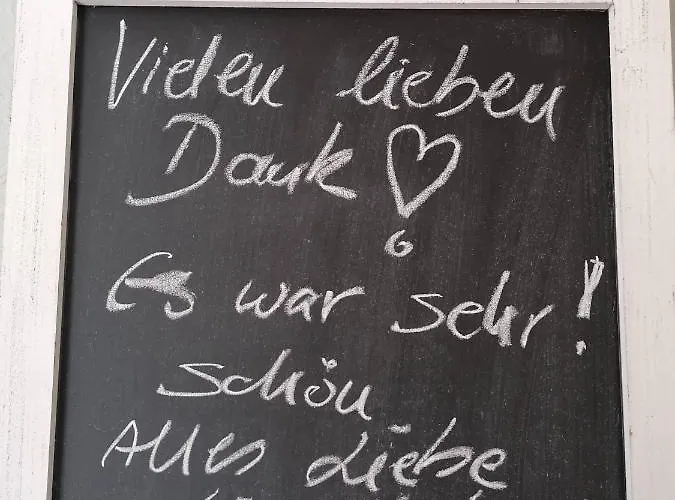 Vielen lieben
Dank!
Es war sehr!
schön
Alles Liebe